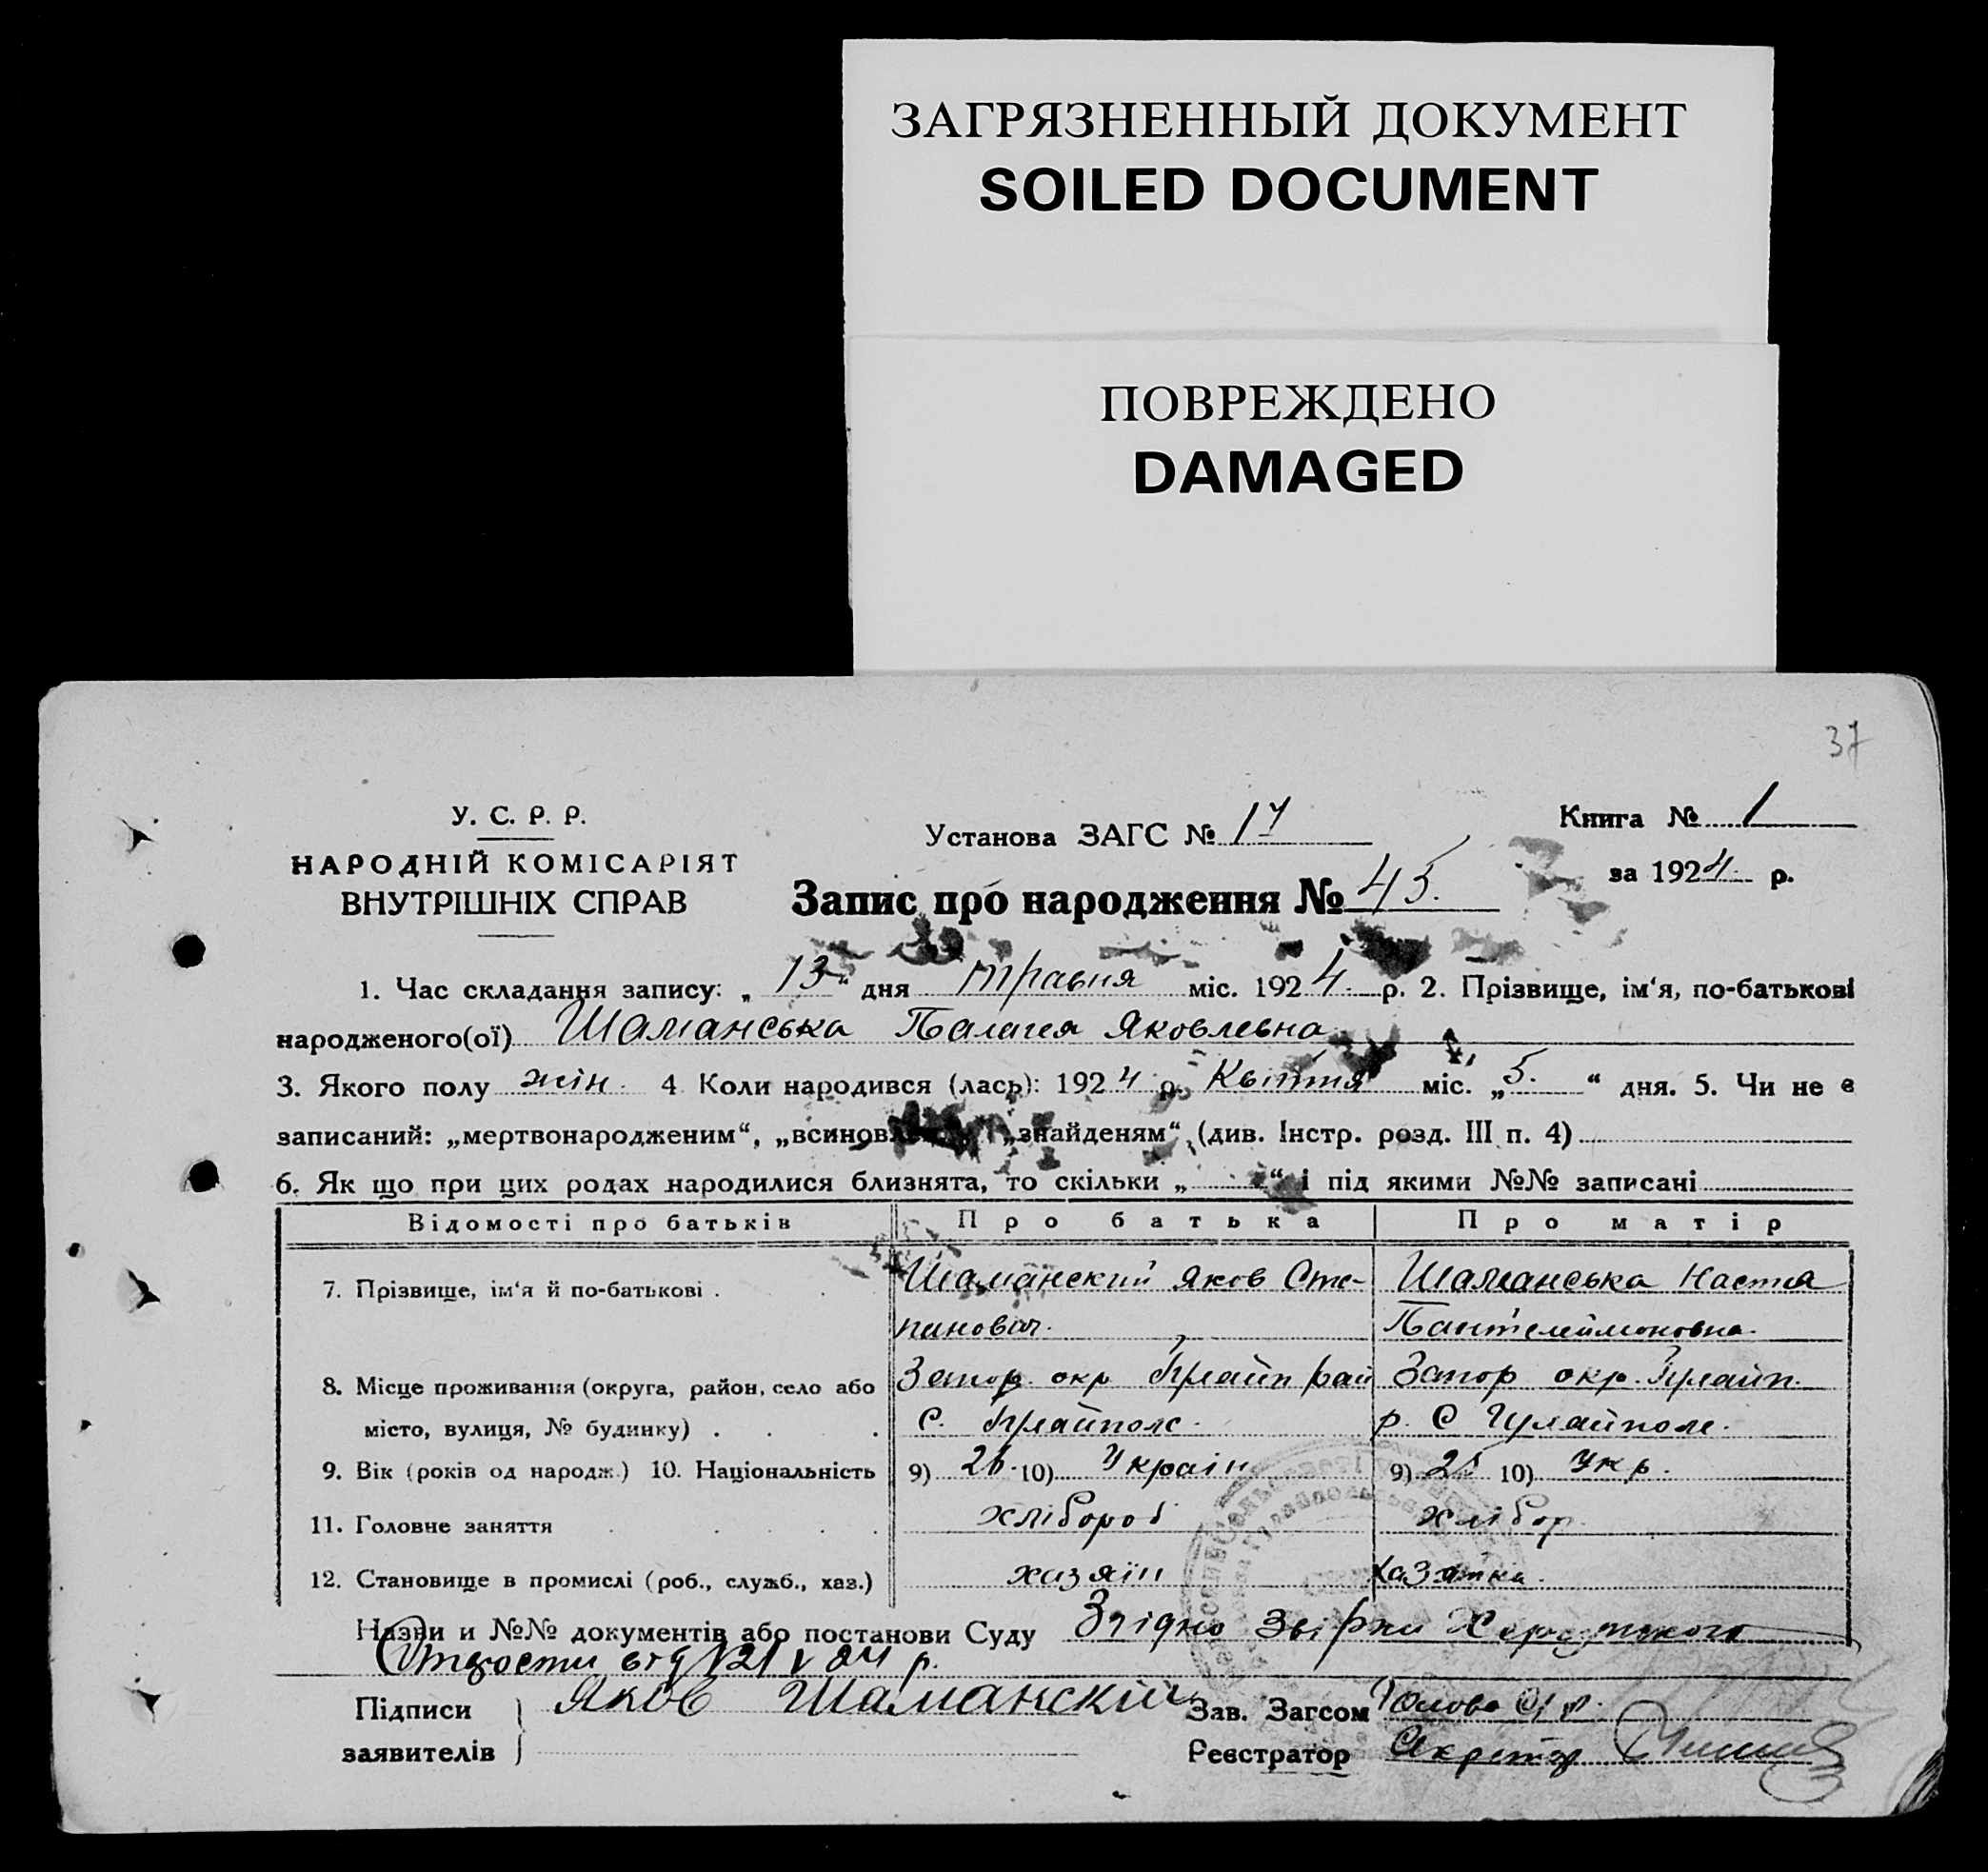 ЗАГРЯЗНЕННЫЙ ДОКУМЕНТ
SOILED DOCUMENT
ПОВРЕЖДЕНО
DAMAGED
37
У. С. Р. Р.
НАРОДНІЙ КОМІСАРІЯТ
ВНУТРІШНІХ СПРАВ
Установа ЗАГС № 17
Книга № 1
за 1924 р.
Запис про народження № 45.
1. Час складання запису: „ 13 “ дня травня міс. 1924. р. 2. Прізвище, ім‘я, по-батькові
народженого(ої) Шаманська Палагея Яковлевна
3. Якого полу жін. 4 Коли народився (лась): 1924 р. Квітня міс. „ 5. “ дня. 5. Чи не є
записаний: „мертвонародженим“, „знайденям“ (див. Інстр. розд. III п. 4)
6. Як що при цих родах народилися близнята, то скільки „ “ і під якими №№ записані
Відомості про батьків Про батька Про матір
7. Прізвище, ім‘я й по-батькові . Шаманский Яков Сте- Шаманська Настя
панович. Пантелеймоновна
8. Місце проживання (округа, район, село або Запор. окр Гуляйп рай Запор окр. Гуляйп.
місто, вулиця, № будинку) . . . С. Гуляйполе. р. С Гуляйполе.
9. Вік (років од народж.) 10. Національність 9) 26. 10) Україн 9) 25 10) Укр.
11. Головне заняття . . . . хлібороб хлібор.
12. Становище в промислі (роб., служб., хаз.) хазяїн хазяйка.
Назви и №№ документів або постанови Суду Згідно Звірки
від р.
Підписи
заявителів
Яков Шаманский
Зав. Загсом Голова
Реєстратор Секретар